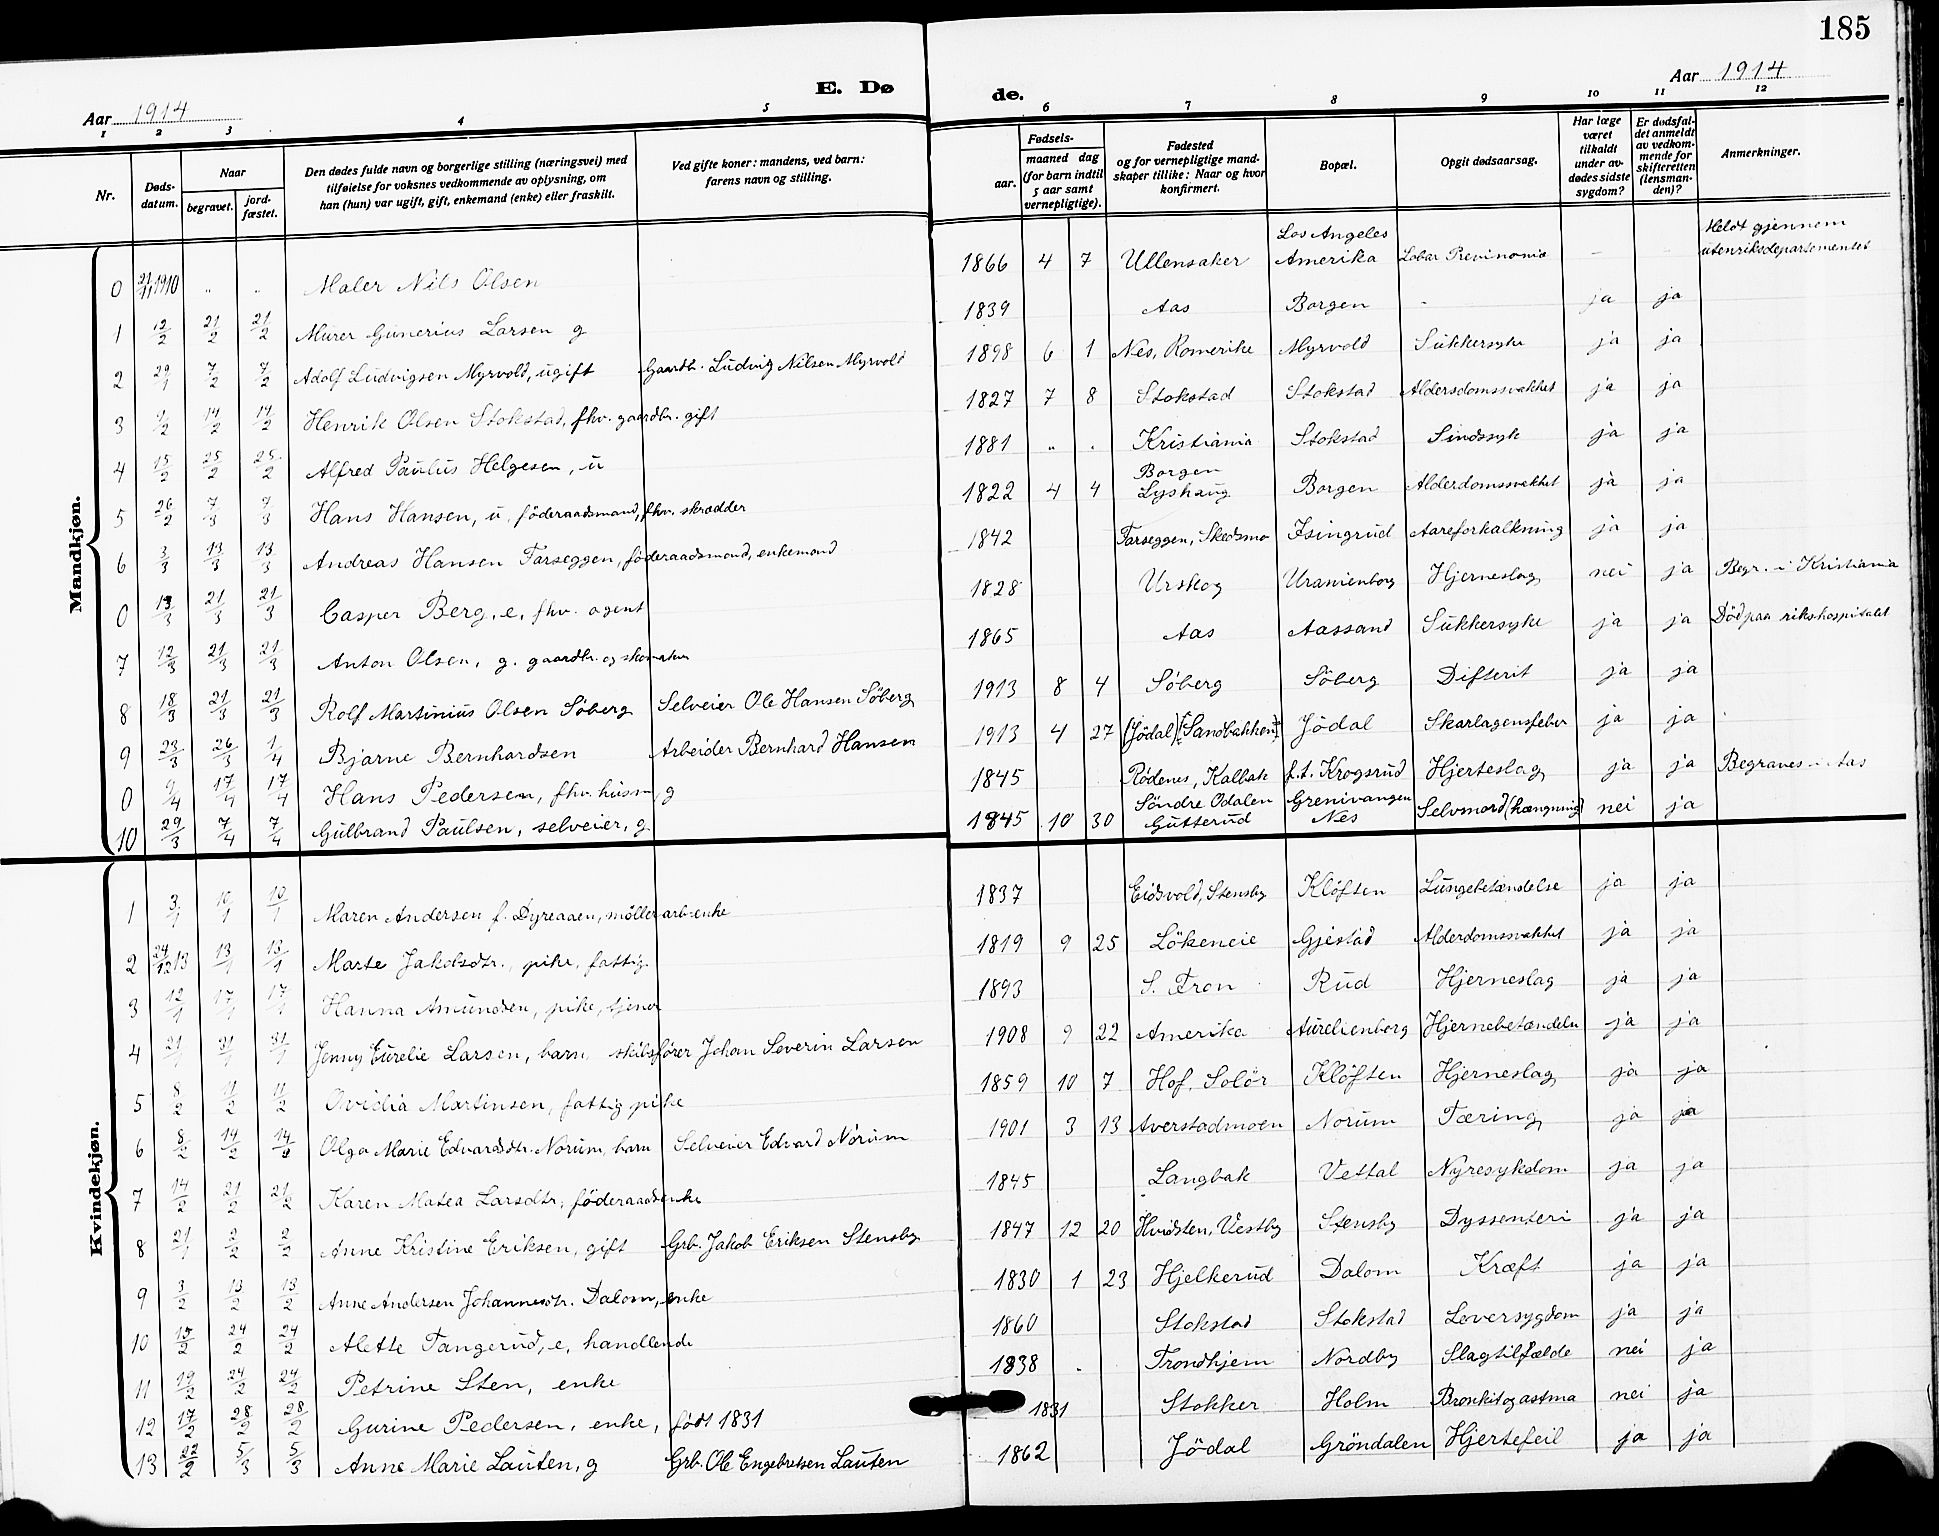 185
Aar 1914
E. Døde.
Aar 1914
1 2 3 4 5 6 7 8 9 10 11 12
Nr.
Døds-datum.
Naar
begravet.
jord-fæstet.
Den dødes fulde navn og borgerlige stilling (næringsvei) med
tilføielse for voksnes vedkommende av oplysning, om
han (hun) var ugift, gift, enkemand (enke) eller fraskilt.
Ved gifte koner: mandens, ved barn:
farens navn og stilling.
Fødsels-
aar.
maaned dag
(for barn indtil
5 aar samt
vernepligtige).
Fødested
og for vernepligtige mand-
skaper tillike: Naar og hvor
konfirmert.
Bopæl.
Opgit dødsaarsag.
Har læge
været
tilkaldt
under av-
dødes sidste
sygdom?
Er dødsfal-
det anmeldt
av vedkom-
mende for
skifteretten
(lensman-
den)?
Anmerkninger.
Mandkjøn.
0 21/11 1910 " " Maler Nils Olsen 1866 4 7 Ullensaker Los Angeles Amerika Lobar Prevmonia — — Meldt gjennem utenriksdepartementet
1 12/2 21/2 21/2 Murer Gunerius Larsen g 1839 Aas Borgen - ja ja
2 29/1 7/2 7/2 Adolf Ludvigsen Myrvold, ugift Gaardbr. Ludvig Nilsen Myrvold 1898 6 1 Nes, Romerike Myrvold Sukkersyke ja ja
3 9/2 14/2 14/2 Henrik Olsen Stokstad, fhv. gaardbr. gift 1827 7 8 Stokstad Stokstad Aldersdomssvakhet ja ja
4 15/2 25/2 25/2 Alfred Paulus Helgesen, u 1881 " " Kristiania Stokstad Sindssyk ja ja
5 26/2 7/3 7/3 Hans Hansen, u, föderaadsmand, fhv. skrædder 1822 4 4 Borgen Lyshaug Borgen Alderdomssvakhet ja ja
6 3/3 13/3 13/3 Andreas Hansen Farseggen, föderaadsmand, enkemand 1842 Farseggen, Skedsmo Isingrud Aareforkalkning ja ja
0 13/3 21/3 21/3 Casper Berg, e, fhv. agent 1828 Urskog Uranienborg Hjerneslag nei ja Begr. i Kristiania
7 12/3 21/3 21/3 Anton Olsen, g. gaardbr. og skomaker 1865 Aas Aassand Sukkersyke ja ja Död paa rikshospitalet
8 18/3 21/3 21/3 Rolf Martinius Olsen Söberg Selveier Ole Hansen Söberg 1913 8 4 Söberg Söberg Difterit ja ja
9 23/3 26/3 1/4 Bjarne Bernhardsen Arbeider Bernhard Hansen 1913 4 27 (Jödal) [Sandbakken] Jödal Skarlagensfeber ja ja
0 9/4 17/4 17/4 Hans Pedersen, fhv. husm, g 1845 Rödenes, Kalbak f.t. Krogsrud Hjerteslag ja ja Begraves i Aas
10 29/3 7/4 7/4 Gulbrand Paulsen, selveier, g 1845 10 30 Söndre Odalen Gutterud Grenivangen Nes Selvmord (hængning) nei ja
Kvindekjøn.
1 3/1 10/1 10/1 Maren Andersen f. Dyreaaen, möllerarb. enke 1837 Eidsvold, Stensby Klöften Lungebetændelse ja ja
2 24/12 13 13/1 13/1 Marte Jakobsdtr., pike, fattig 1819 9 25 Lökeneie Gjestad Alderdomssvakhet ja ja
3 12/1 17/1 17/1 Hanna Amundsen, pike, tjener 1893 S. Fron Rud Hjerneslag ja ja
4 21/1 31/1 31/1 Jenny Eurelie Larsen, barn, skibsfører Johan Severin Larsen 1908 9 22 Amerika Aurelienborg Hjernebetændelse ja ja
5 8/2 11/2 11/2 Ovidia Martinsen, fattig pike 1859 10 7 Hof. Solör Klöften Hjerneslag ja ja
6 8/2 14/2 14/2 Olga Marie Edvardsdtr. Norum, barn Selveier Edvard Norum 1901 3 13 Averstadmoen Norum Tæring ja ja
7 14/2 21/2 21/2 Karen Matea Larsdtr, föderaadsenke 1845 Langbak Vettal Nyresykdom ja ja
8 21/1 2/2 2/2 Anne Kristine Eriksen, gift Grb. Jakob Eriksen Stensby 1847 12 20 Hvidsten, Vestby Stensby Dyssenteri ja ja
9 3/2 13/2 13/2 Anne Andersen Johannesdtr. Dalom, enke 1830 1 23 Hjelkerud Dalom Kræft ja ja
10 15/2 24/2 24/2 Alette Tangerud, e, handlende 1860 Stokstad Stokstad Leversygdom ja ja
11 19/2 24/2 24/2 Petrine Sten, enke 1838 Trondhjem Nordby Slagtilfælde nei ja
12 17/2 28/2 28/2 Gurine Pedersen, enke, født 1831 1831 Stokker Holm Bronkit og astma nei ja
13 22/2 5/3 5/3 Anne Marie Lauten, g Grb. Ole Engebretsen Lauten 1862 Jödal Gröndalen Hjertefeil ja ja